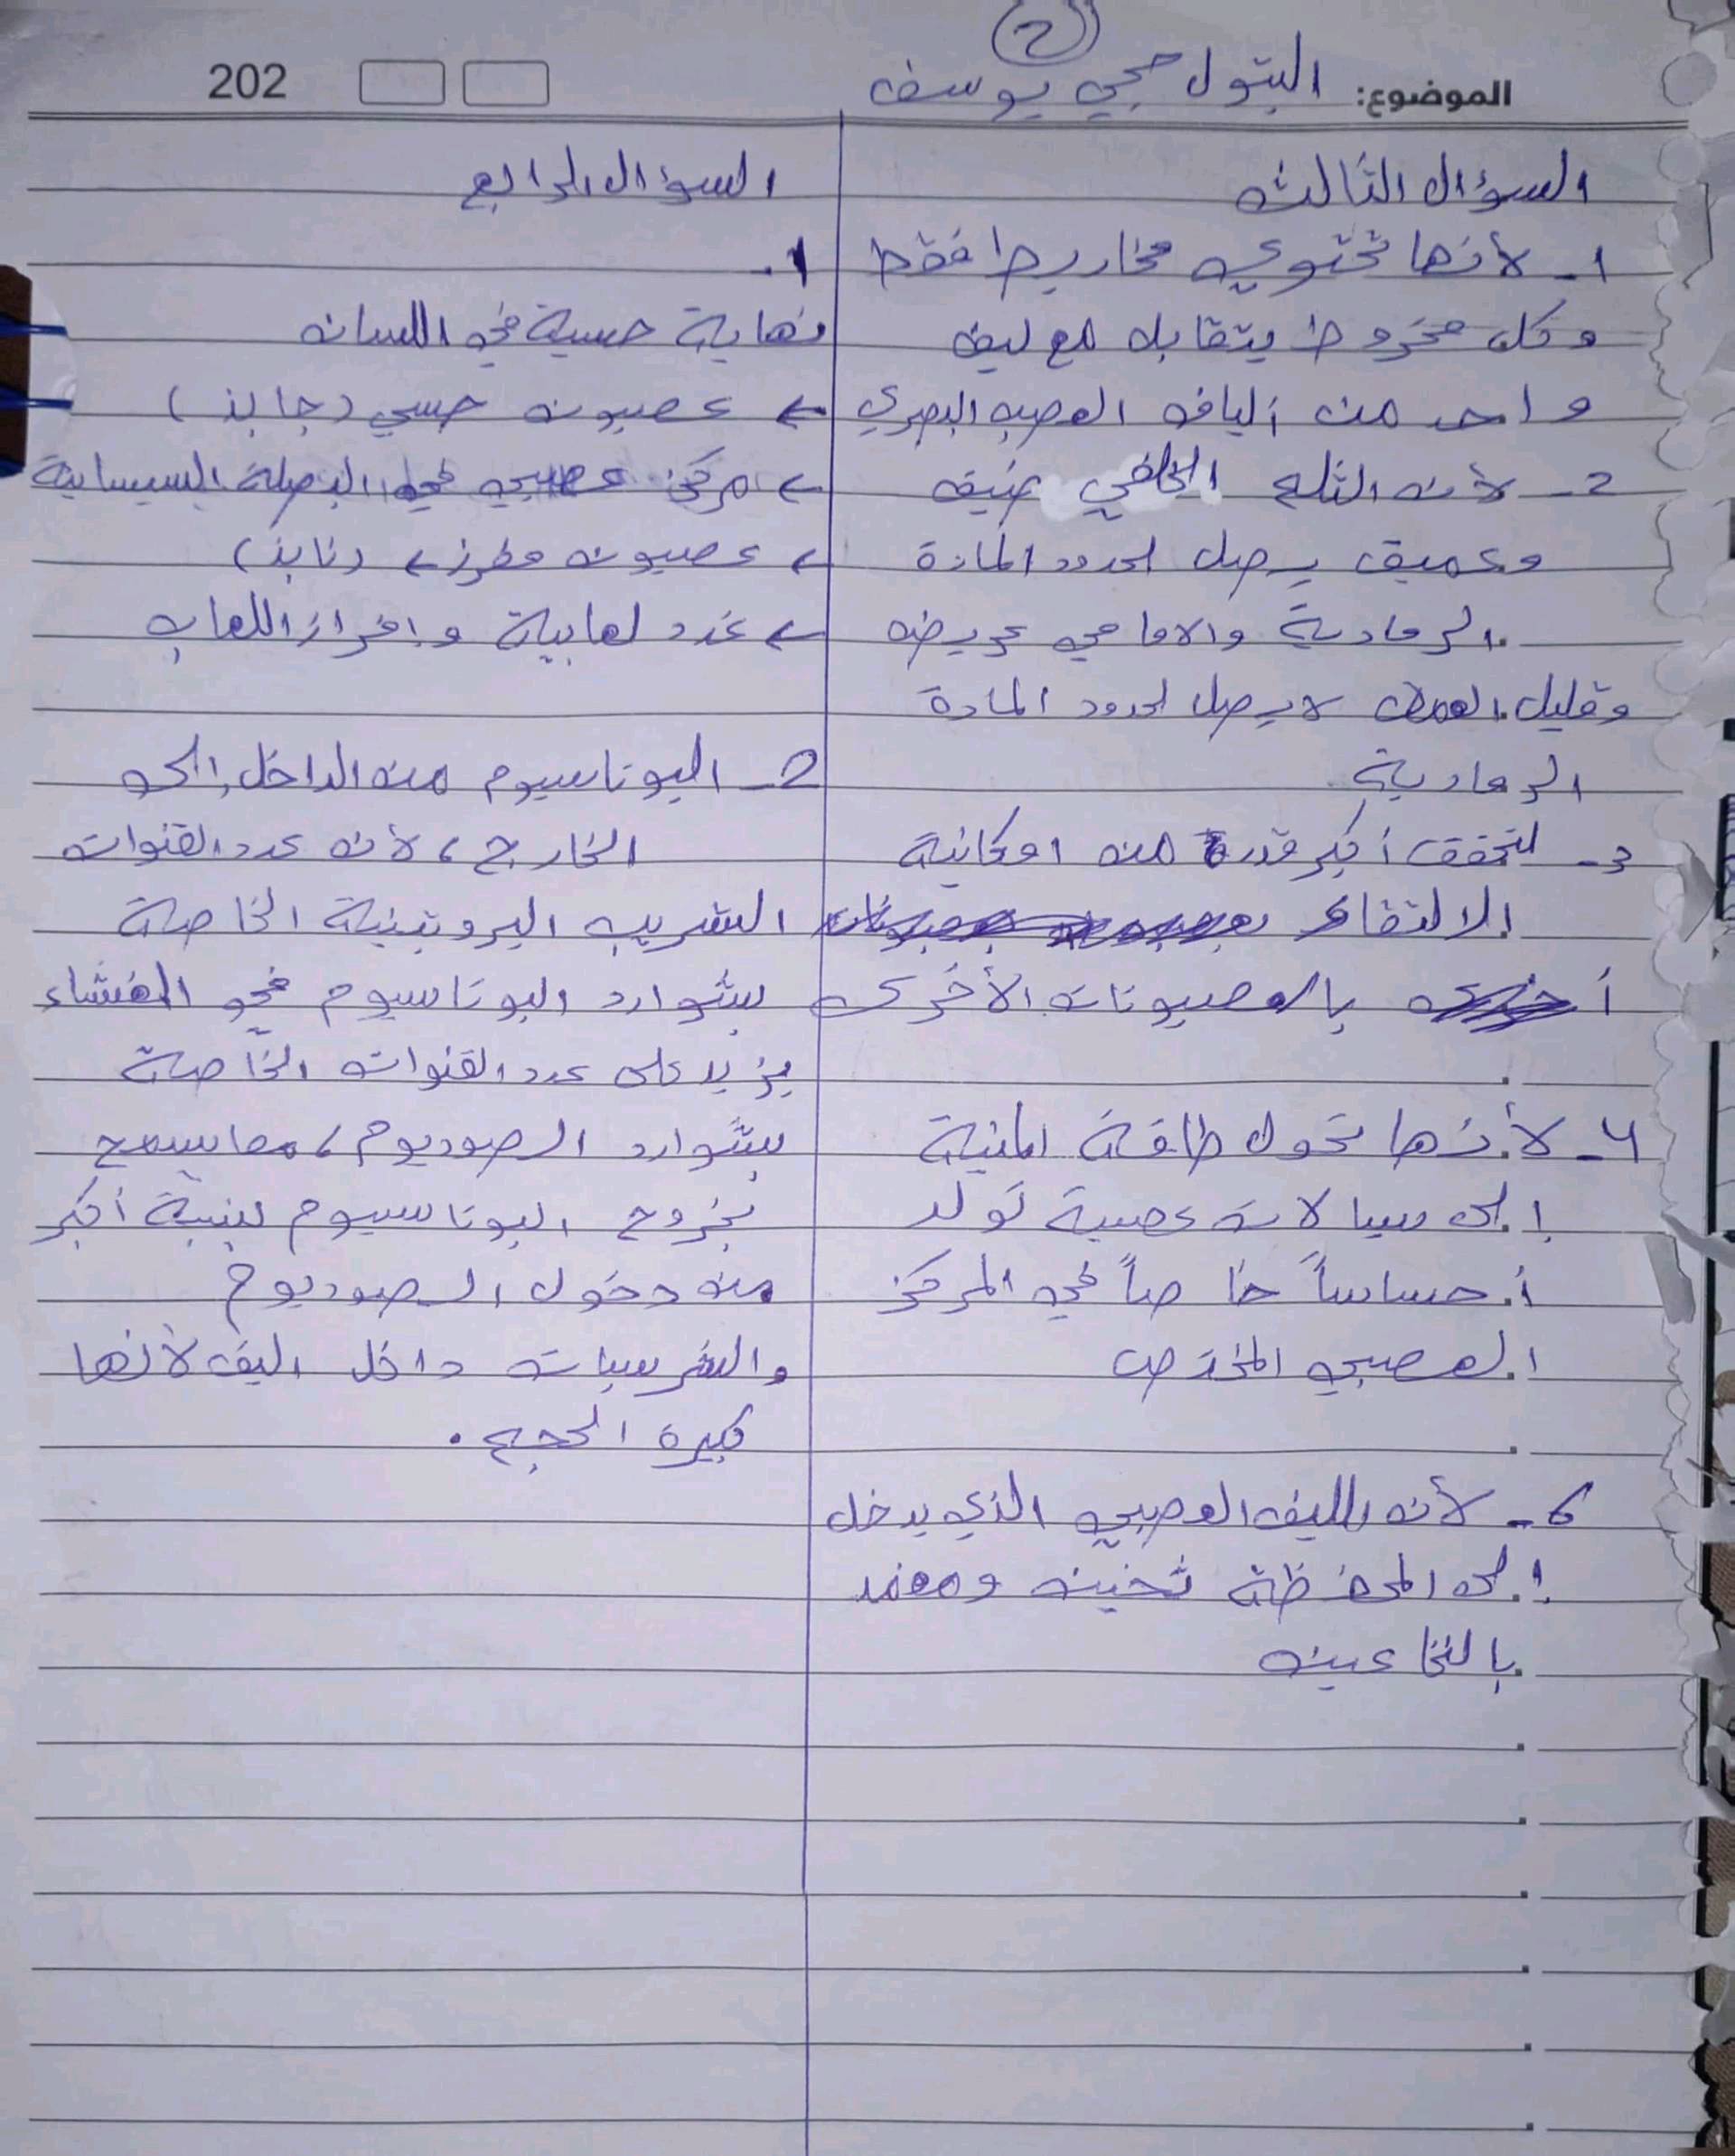 2
الموضوع: البتول حجي يوسف
202
السؤال الثالث
1- لأنها تحتوي مخاريط فقط
وكل مخروط يتقابل مع ليف
واحد من ألياف العصب البصري
2- لأن الثلم الخلفي ضيق
وعميق يصل لحدود المادة
الرمادية والامامي عريض
وقليل العمق لا يصل لحدود المادة
الرمادية
3- لتحقق أكبر قدرة من امكانية
الالتقاء
بالعصبونات الأخرى
4- لأنها تحول طاقة المنبه
إلى سيالات عصبية تولد
أحساساً خاصاً في المركز
العصبي المختص
6- لأن الليف العصبي الذي يدخل
إلى المحفظة ثخين ومغمد
بالنخاعين
السؤال الرابع
1-
نهاية حسية في اللسان
← عصبون حسي (جابذ)
← مركز عصبي في البصلة السيسائية
← عصبون مفرز ← (نابذ)
← غدد لعابية وافراز اللعاب
2- البوتاسيوم من الداخل إلى
الخارج، لأن عدد القنوات
التسريب البروتينية الخاصة
بشوارد البوتاسيوم في الغشاء
يزيد على عدد القنوات الخاصة
بشوارد الصوديوم، مما يسمح
بخروج البوتاسيوم بنسبة أكبر
من دخول الصوديوم
والشرسبات داخل الليف لأنها
كبيرة الحجم.